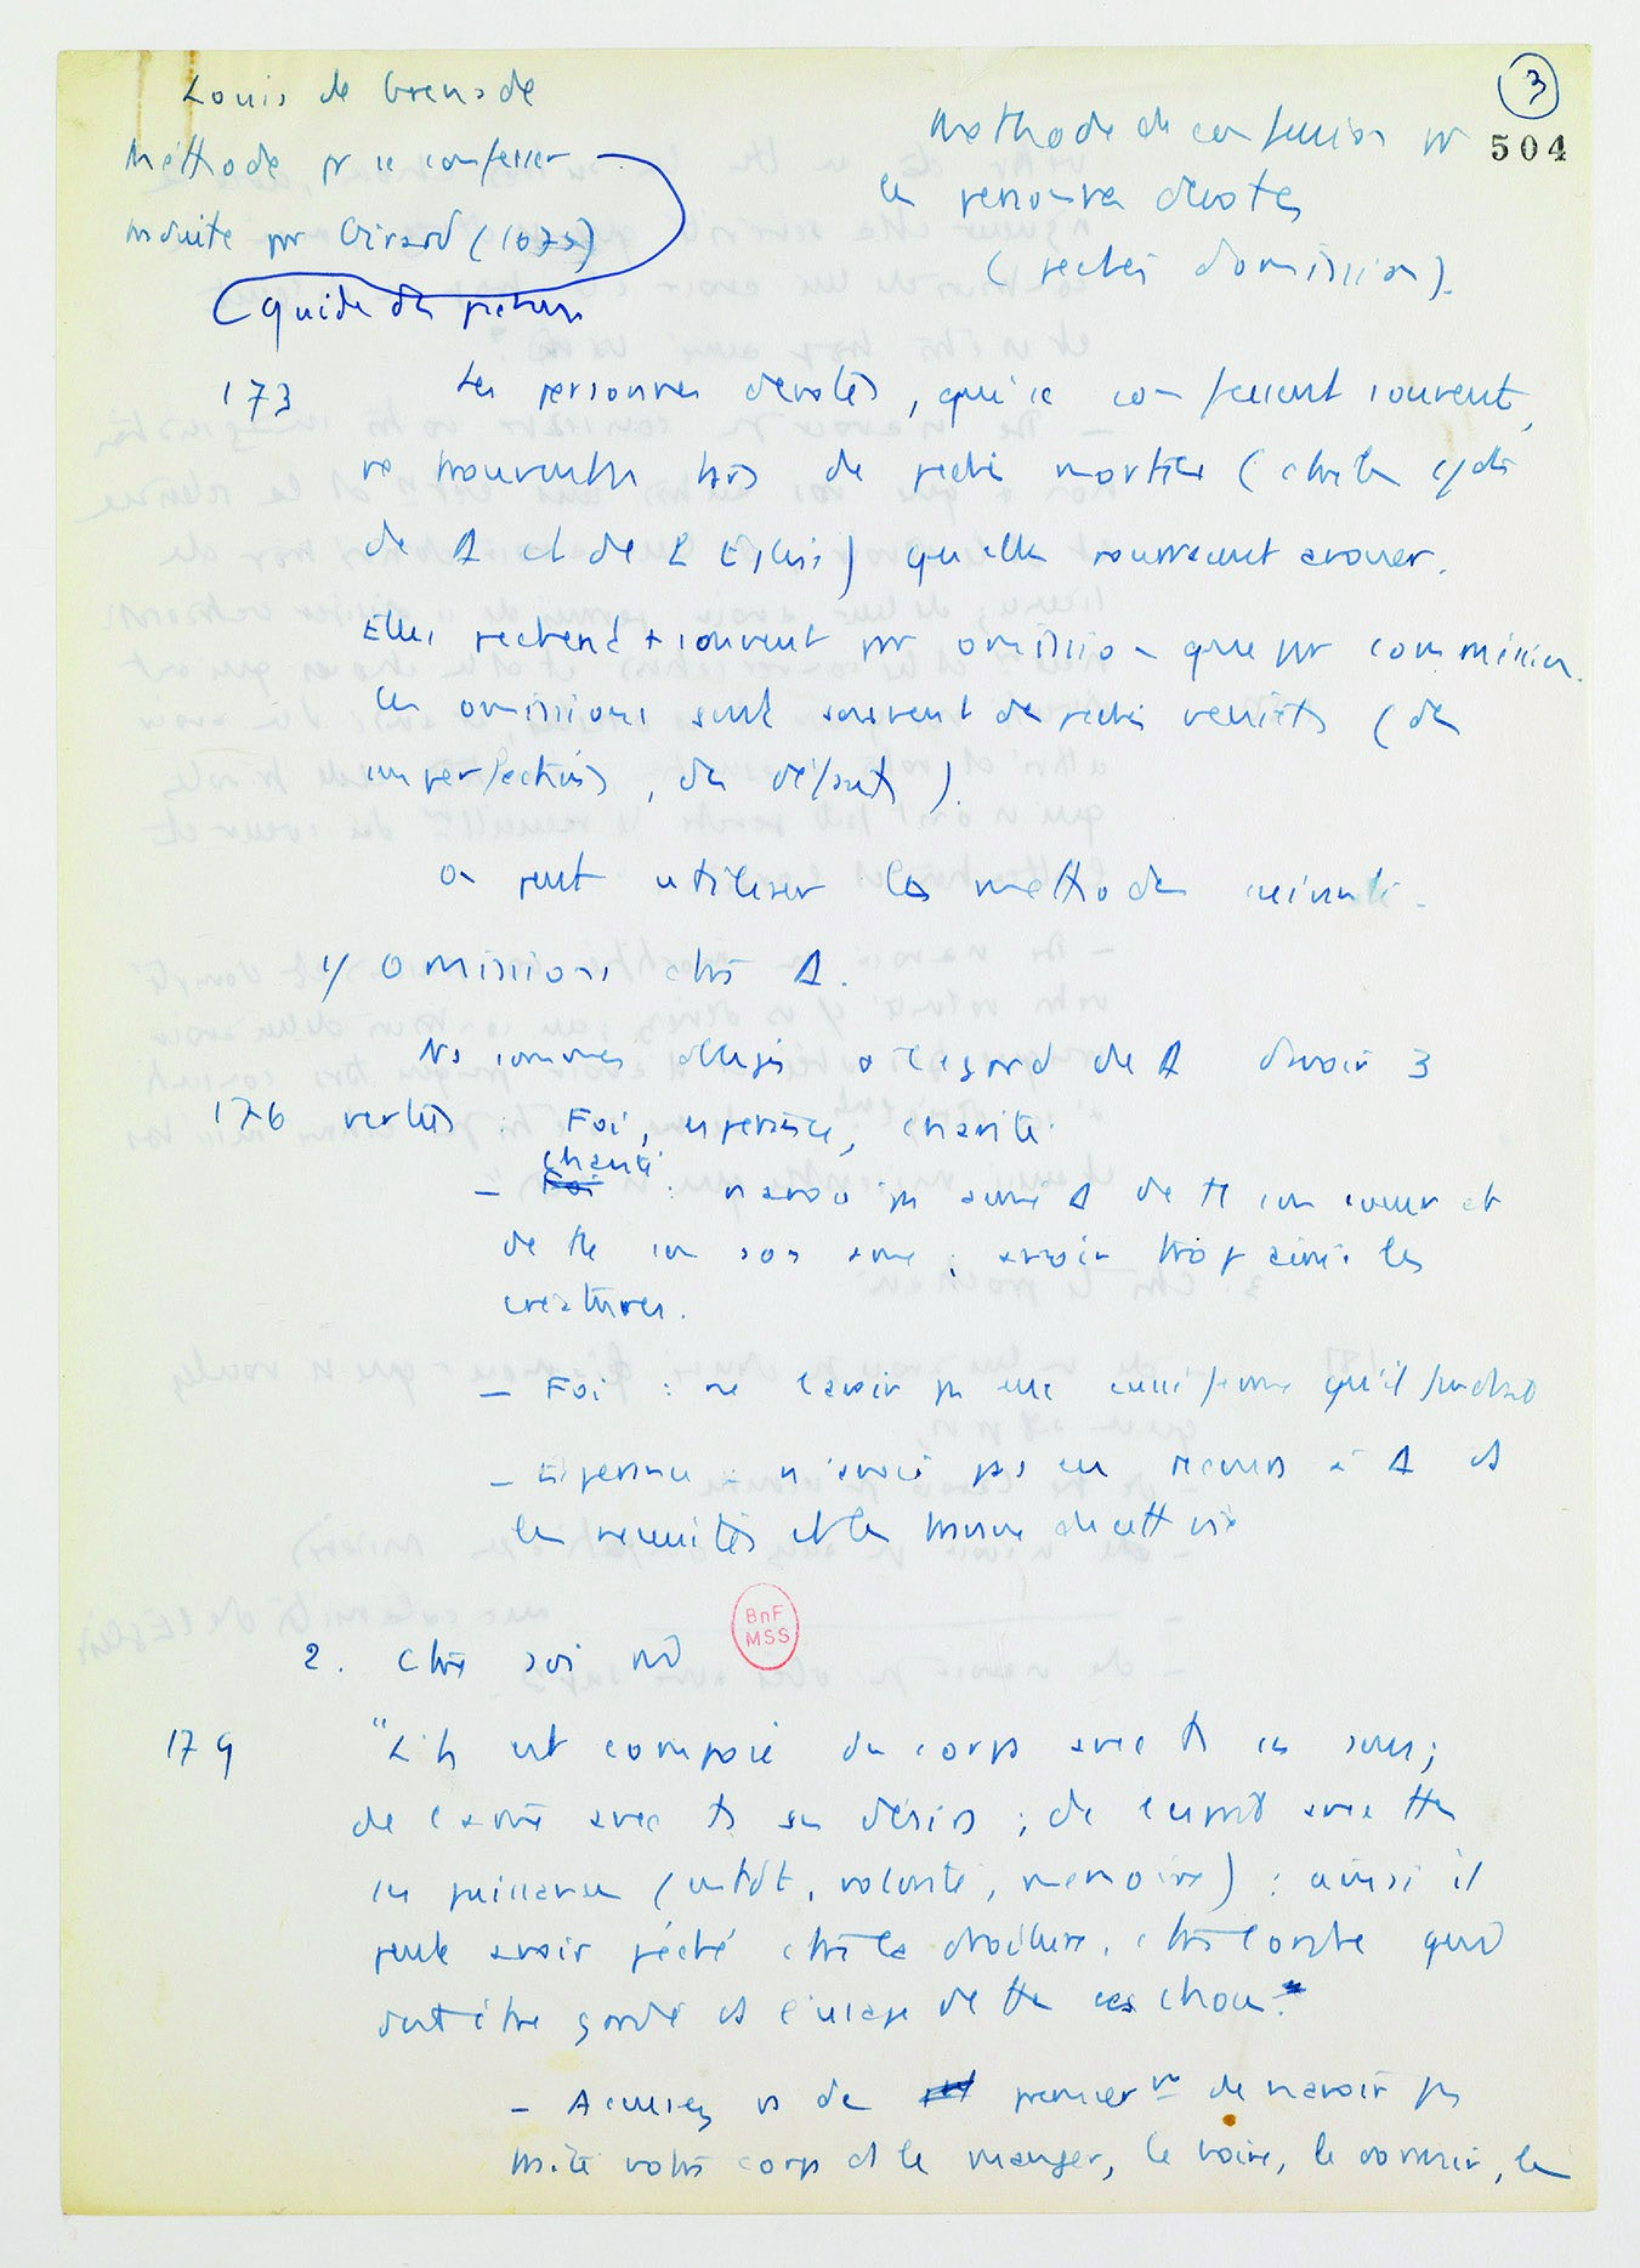 Louis de Grenade
Méthode pr se confesser
traduite par Girard (1675)
(guide des pécheurs
3
504
Methode de confession pr
les personnes devotes
(péchés d'omission).
173 Les personnes devotes, qui se confessent souvent,
ne trouvent pas de péchés mortels (ctre les cdts
de D et de l'Eglise) qu'elles puissent avouer.
Elles pechent + souvent par omission que par commission.
Ces omissions sont souvent des pechés veniels (des
imperfections, des défauts).
On peut utiliser la methode suivante.
1/ Omissions ctre D.
Ns sommes obligés à l'egard de D d'avoir 3
176 vertus : Foi, esperance, charité.
charité
- Foi : n'avoir pas aimé D de tt son coeur et
de tte son ame ; avoir trop aimé les
creatures.
- Foi : ne l'avoir pas eue aussi ferme qu'il faudrait
- Esperance : n'avoir pas eu recours à D ds
les necessités et les misères de cette vie
BnF
MSS
2. Ctre soi mê
179 "L'h est composé du corps avec ts ses sens ;
de l'ame avec ts ses désirs ; de l'esprit avec ttes
ses puissances (entdt, volonté, memoire) : ainsi il
peut avoir péché ctre la droiture, ctre l'ordre qui
doit être gardé ds l'usage de ttes ces choses."
- Accusez vs de premierᵗ de n'avoir pas
traité votre corps ds le manger, le boire, le dormir, le